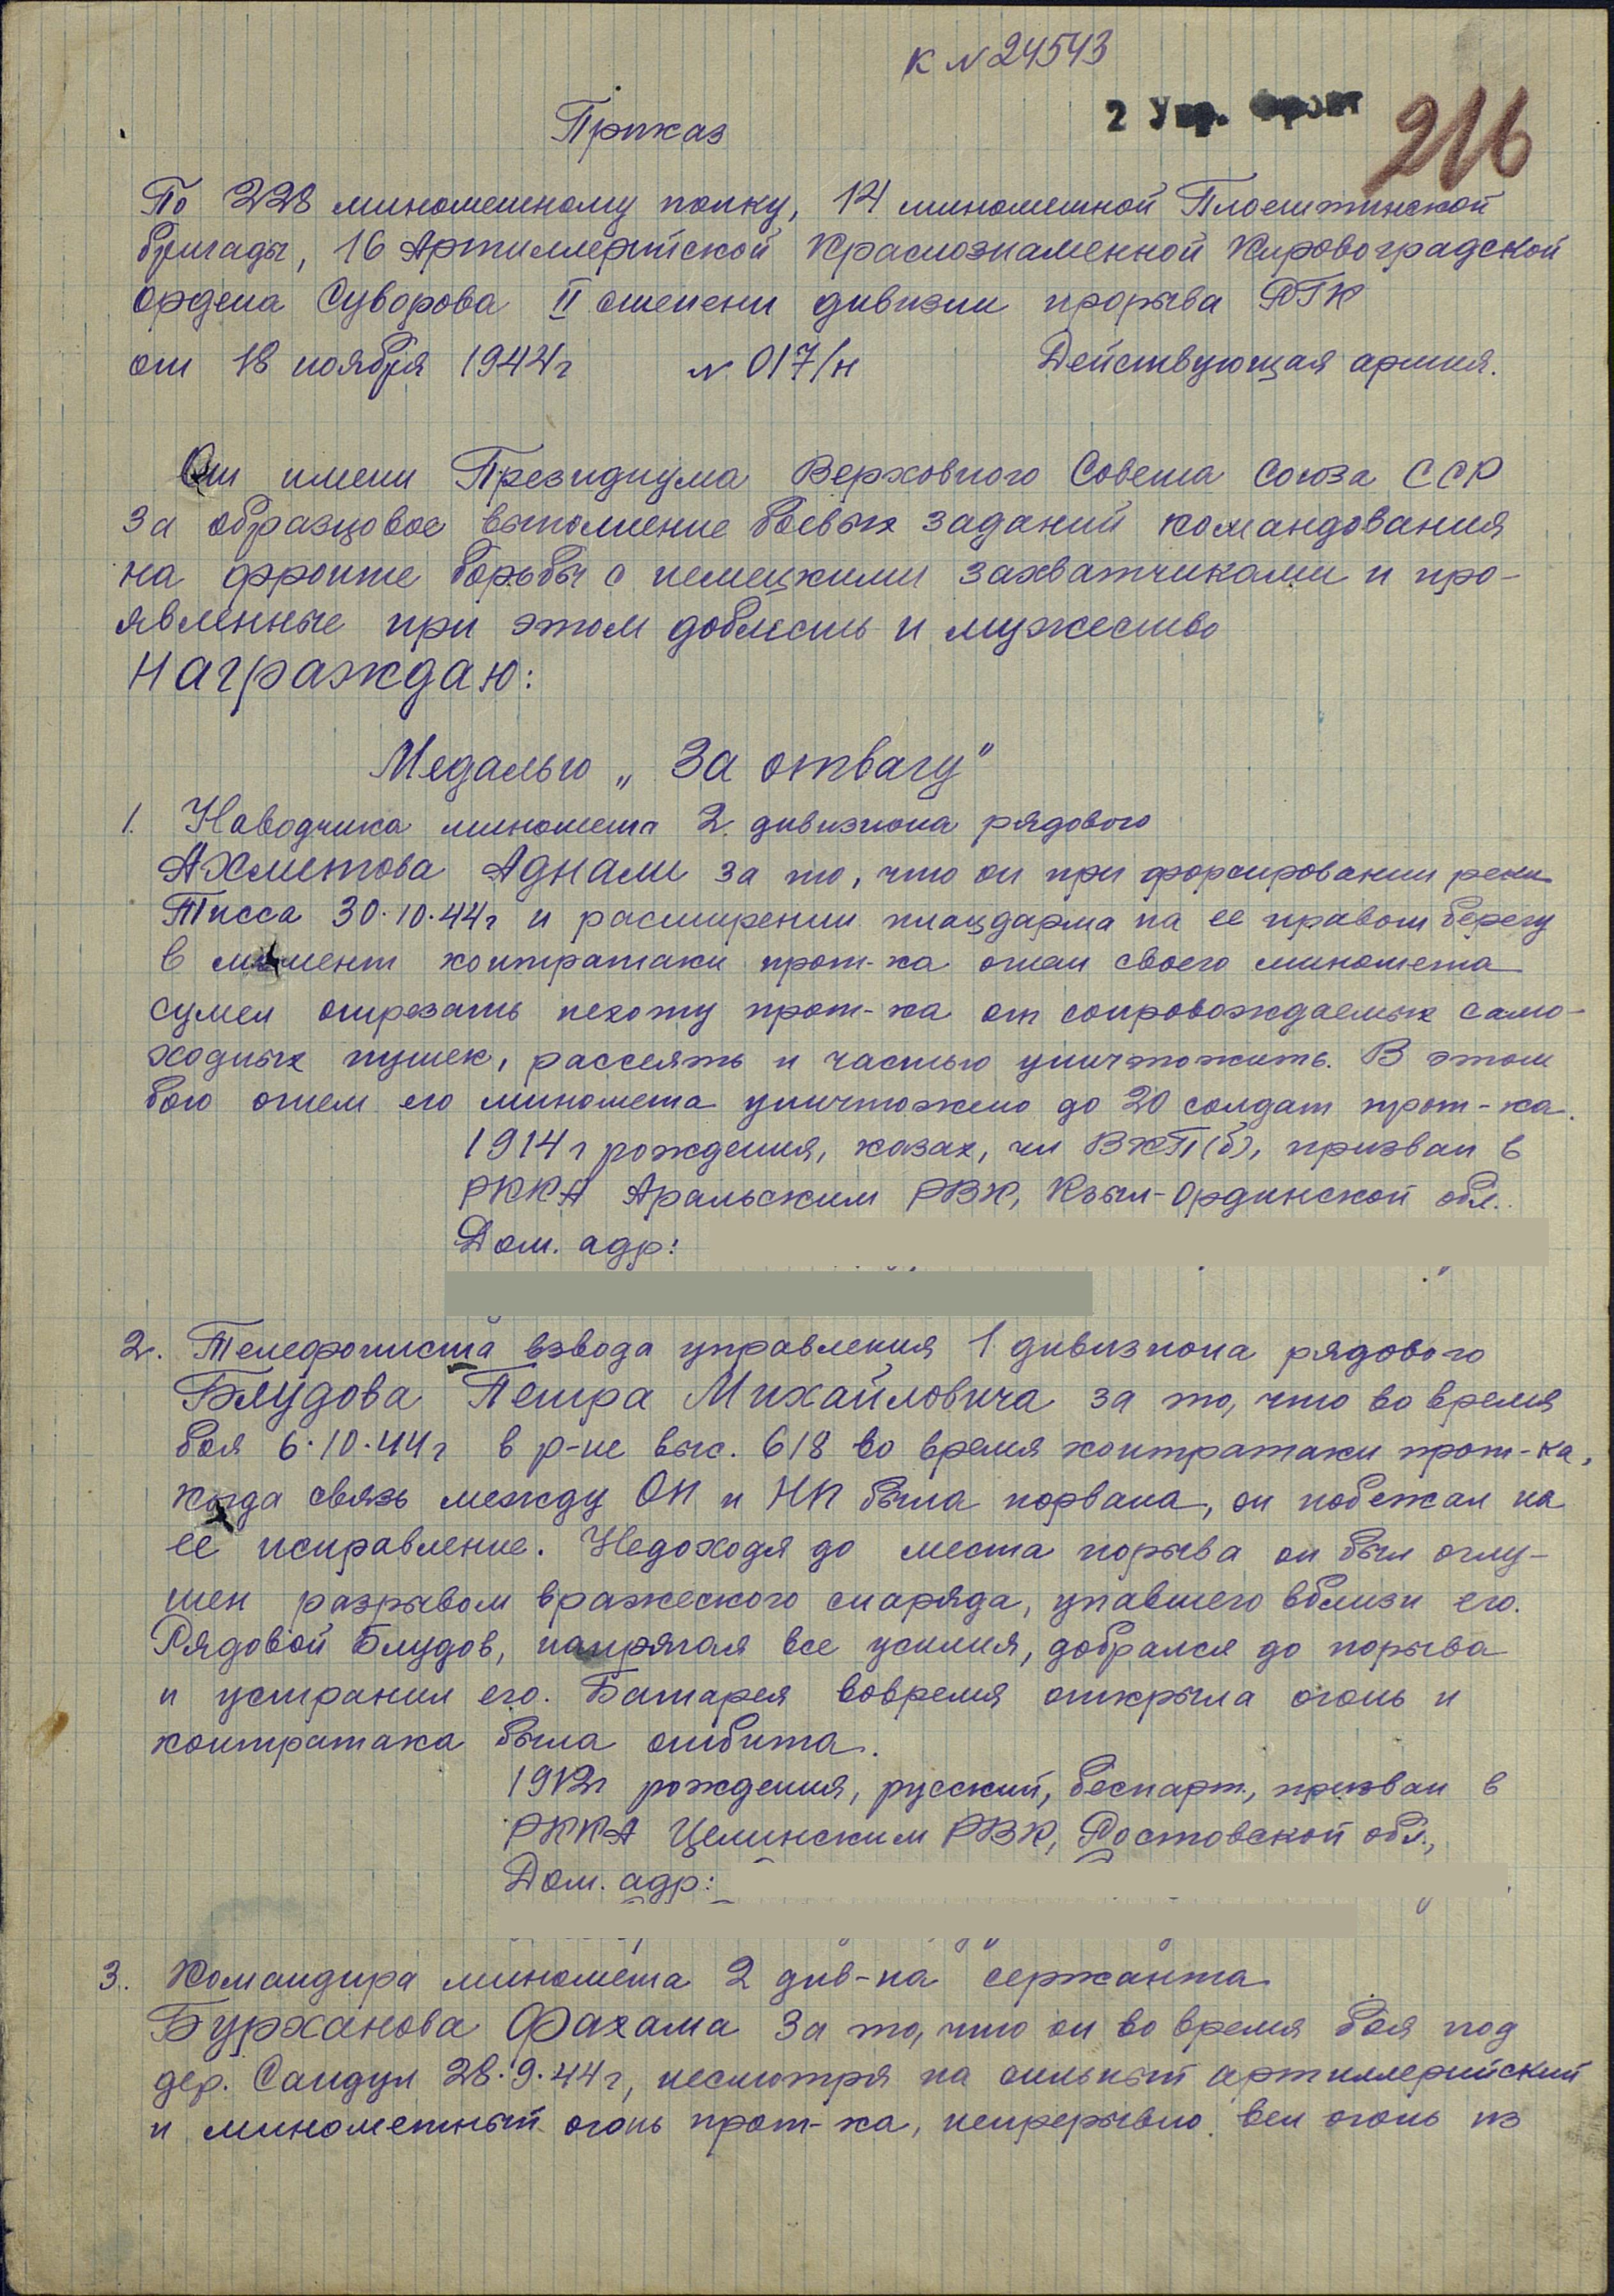 к №24543
2 Укр. Фронт
216
Приказ
По 228 минометному полку, 14 минометной Плоештинской
бригады, 16 Артиллерийской Краснознаменной Кировоградской
ордена Суворова II степени дивизии прорыва РГК
от 18 ноября 1944г № 017/н Действующая армия.
От имени Президиума Верховного Совета Союза ССР
за образцовое выполнение боевых заданий командования
на фронте борьбы с немецкими захватчиками и про-
явленные при этом доблесть и мужество
Награждаю:
Медалью „За отвагу"
1. Наводчика миномета 2 дивизиона рядового
Ахметова Аднали за то, что он при форсировании реки
Тисса 30.10.44г и расширении плацдарма на ее правом берегу
в момент контратаки прот-ка огнем своего миномета
сумел отрезать пехоту прот-ка от сопровождаемых само-
ходных пушек, рассеять и частью уничтожить. В этом
бою огнем его миномета уничтожено до 20 солдат прот-ка.
1914г рождения, казах, чл ВКП(б), призван в
РККА Аральским РВК, Кзыл-Ординской обл.
Дом. адр:
2. Телефониста взвода управления 1 дивизиона рядового
Блудова Петра Михайловича за то, что во время
боя 6.10.44г в р-не выс. 618 во время контратаки прот-ка,
когда связь между ОП и НП была порвана, он побежал на
ее исправление. Недоходя до места порыва он был оглу-
шен разрывом вражеского снаряда, упавшего вблизи его.
Рядовой Блудов, напрягая все усилия, добрался до порыва
и устранил его. Батарея вовремя открыла огонь и
контратака была отбита.
1912г рождения, русский, беспарт., призван в
РККА Целинским РВК, Ростовской обл.,
Дом. адр:
3. Командира миномета 2 див-на сержанта
Бурханова Фахама за то, что он во время боя под
дер. Сандул 28.9.44г, несмотря на сильный артиллерийский
и минометный огонь прот-ка, непрерывно вел огонь из